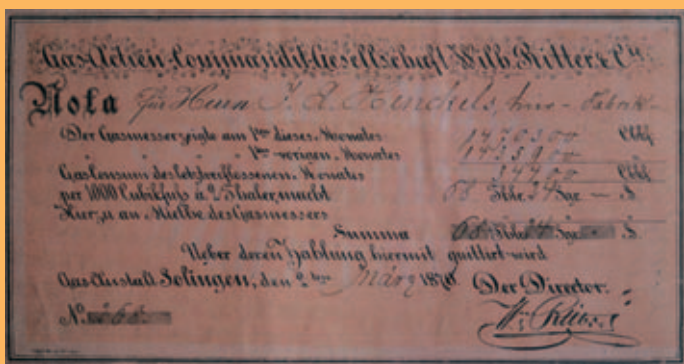 Gas-Actien-Commandit-Gesellschaft Wilh. Ritter & Cie
Nota für Herrn J. A. Henckels, hier - Fabrik -
Der Gasmesser zeigte am 1ten dieses Monates 1470300 Cbkf.
1ten vorigen Monates 00 Cbkf.
Gasconsum des letztverflossenen Monates 34400 Cbkf.
per 1000 Cubikfuss à 2 Thaler, macht 68 Thlr. 24 Sgr. - S.
Hierzu an Miethe des Gasmessers
Summa 68 Thlr. 24 Sgr. - S.
Ueber deren Zahlung hiermit quittirt wird
Gas-Anstalt Solingen, den 2ten März 1870. Der Director.
No. 268